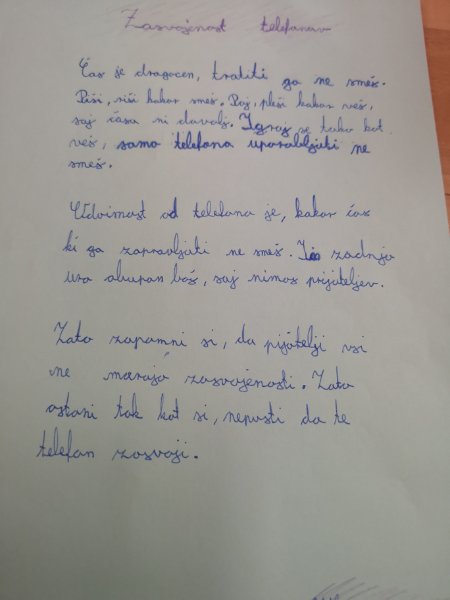 Zasvojenost telefonov
Čas je dragocen, tratiti ga ne smeš.
Piši, riši kakor smeš. Poj, pleši kakor veš,
saj časa ni dovolj. Igraj se tako kot
veš, samo telefona uporabljati ne
smeš.
Odvisnost od telefona je, kakor čas
ki ga zapravljati ne smeš. Za zadnjo
uro obupan boš, saj nimaš prijateljev.
Zato zapomni si, da pijatelji vsi
ne marajo zasvojenosti. Zato
ostani tak kot si, nepusti da te
telefon zasvoji.